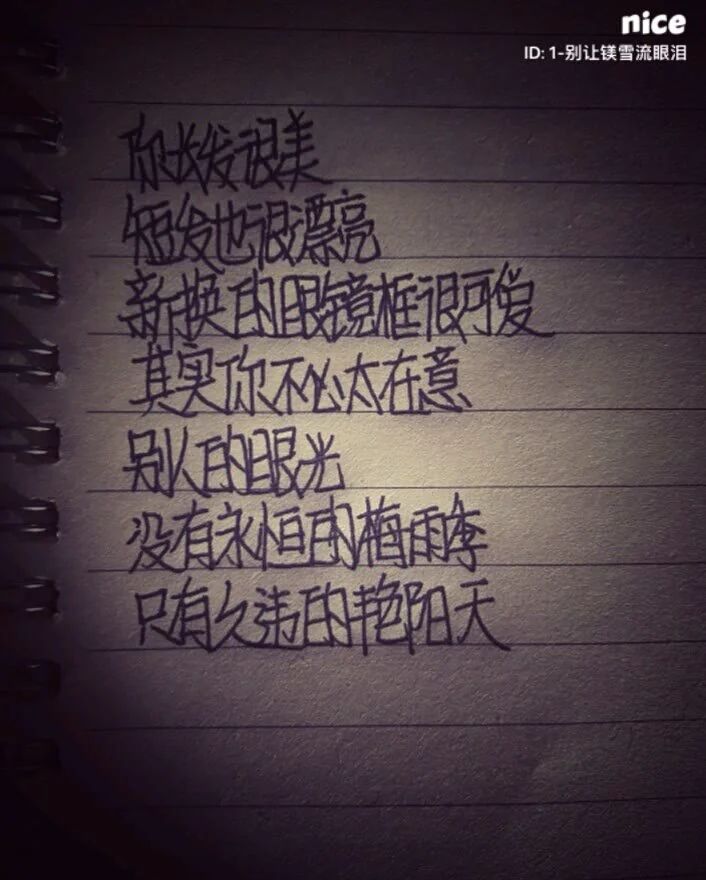 nice
ID: 1-别让镁雪流眼泪
你长发很美
短发也很漂亮
新换的眼镜框很可爱
其实你不必太在意
别人的眼光
没有永恒的梅雨季
只有久违的艳阳天